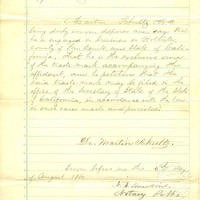 Martin Schully
being duly sworn deposes and says that
is engaged in business in Hollister
county of San Benito and State of Cali-
fornia, that he is the exclusive owner
of the trade mark accompanying this
affidavit, and he petitions that the
said trade mark may be filed in the
office of the Secretary of State of the State
of California, in accordance with the law
in such cases made and provided
Dr. Martin Schully.
Sworn before me this 5th day
of August 18
Notary Public